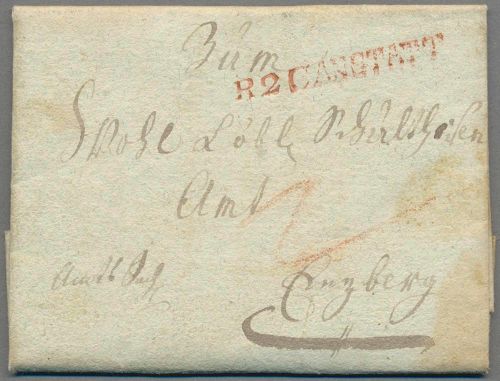 Zum
R2CANSTATT
Wohl Löbl Schultheisen
Amt
Amts Sach
Enzberg